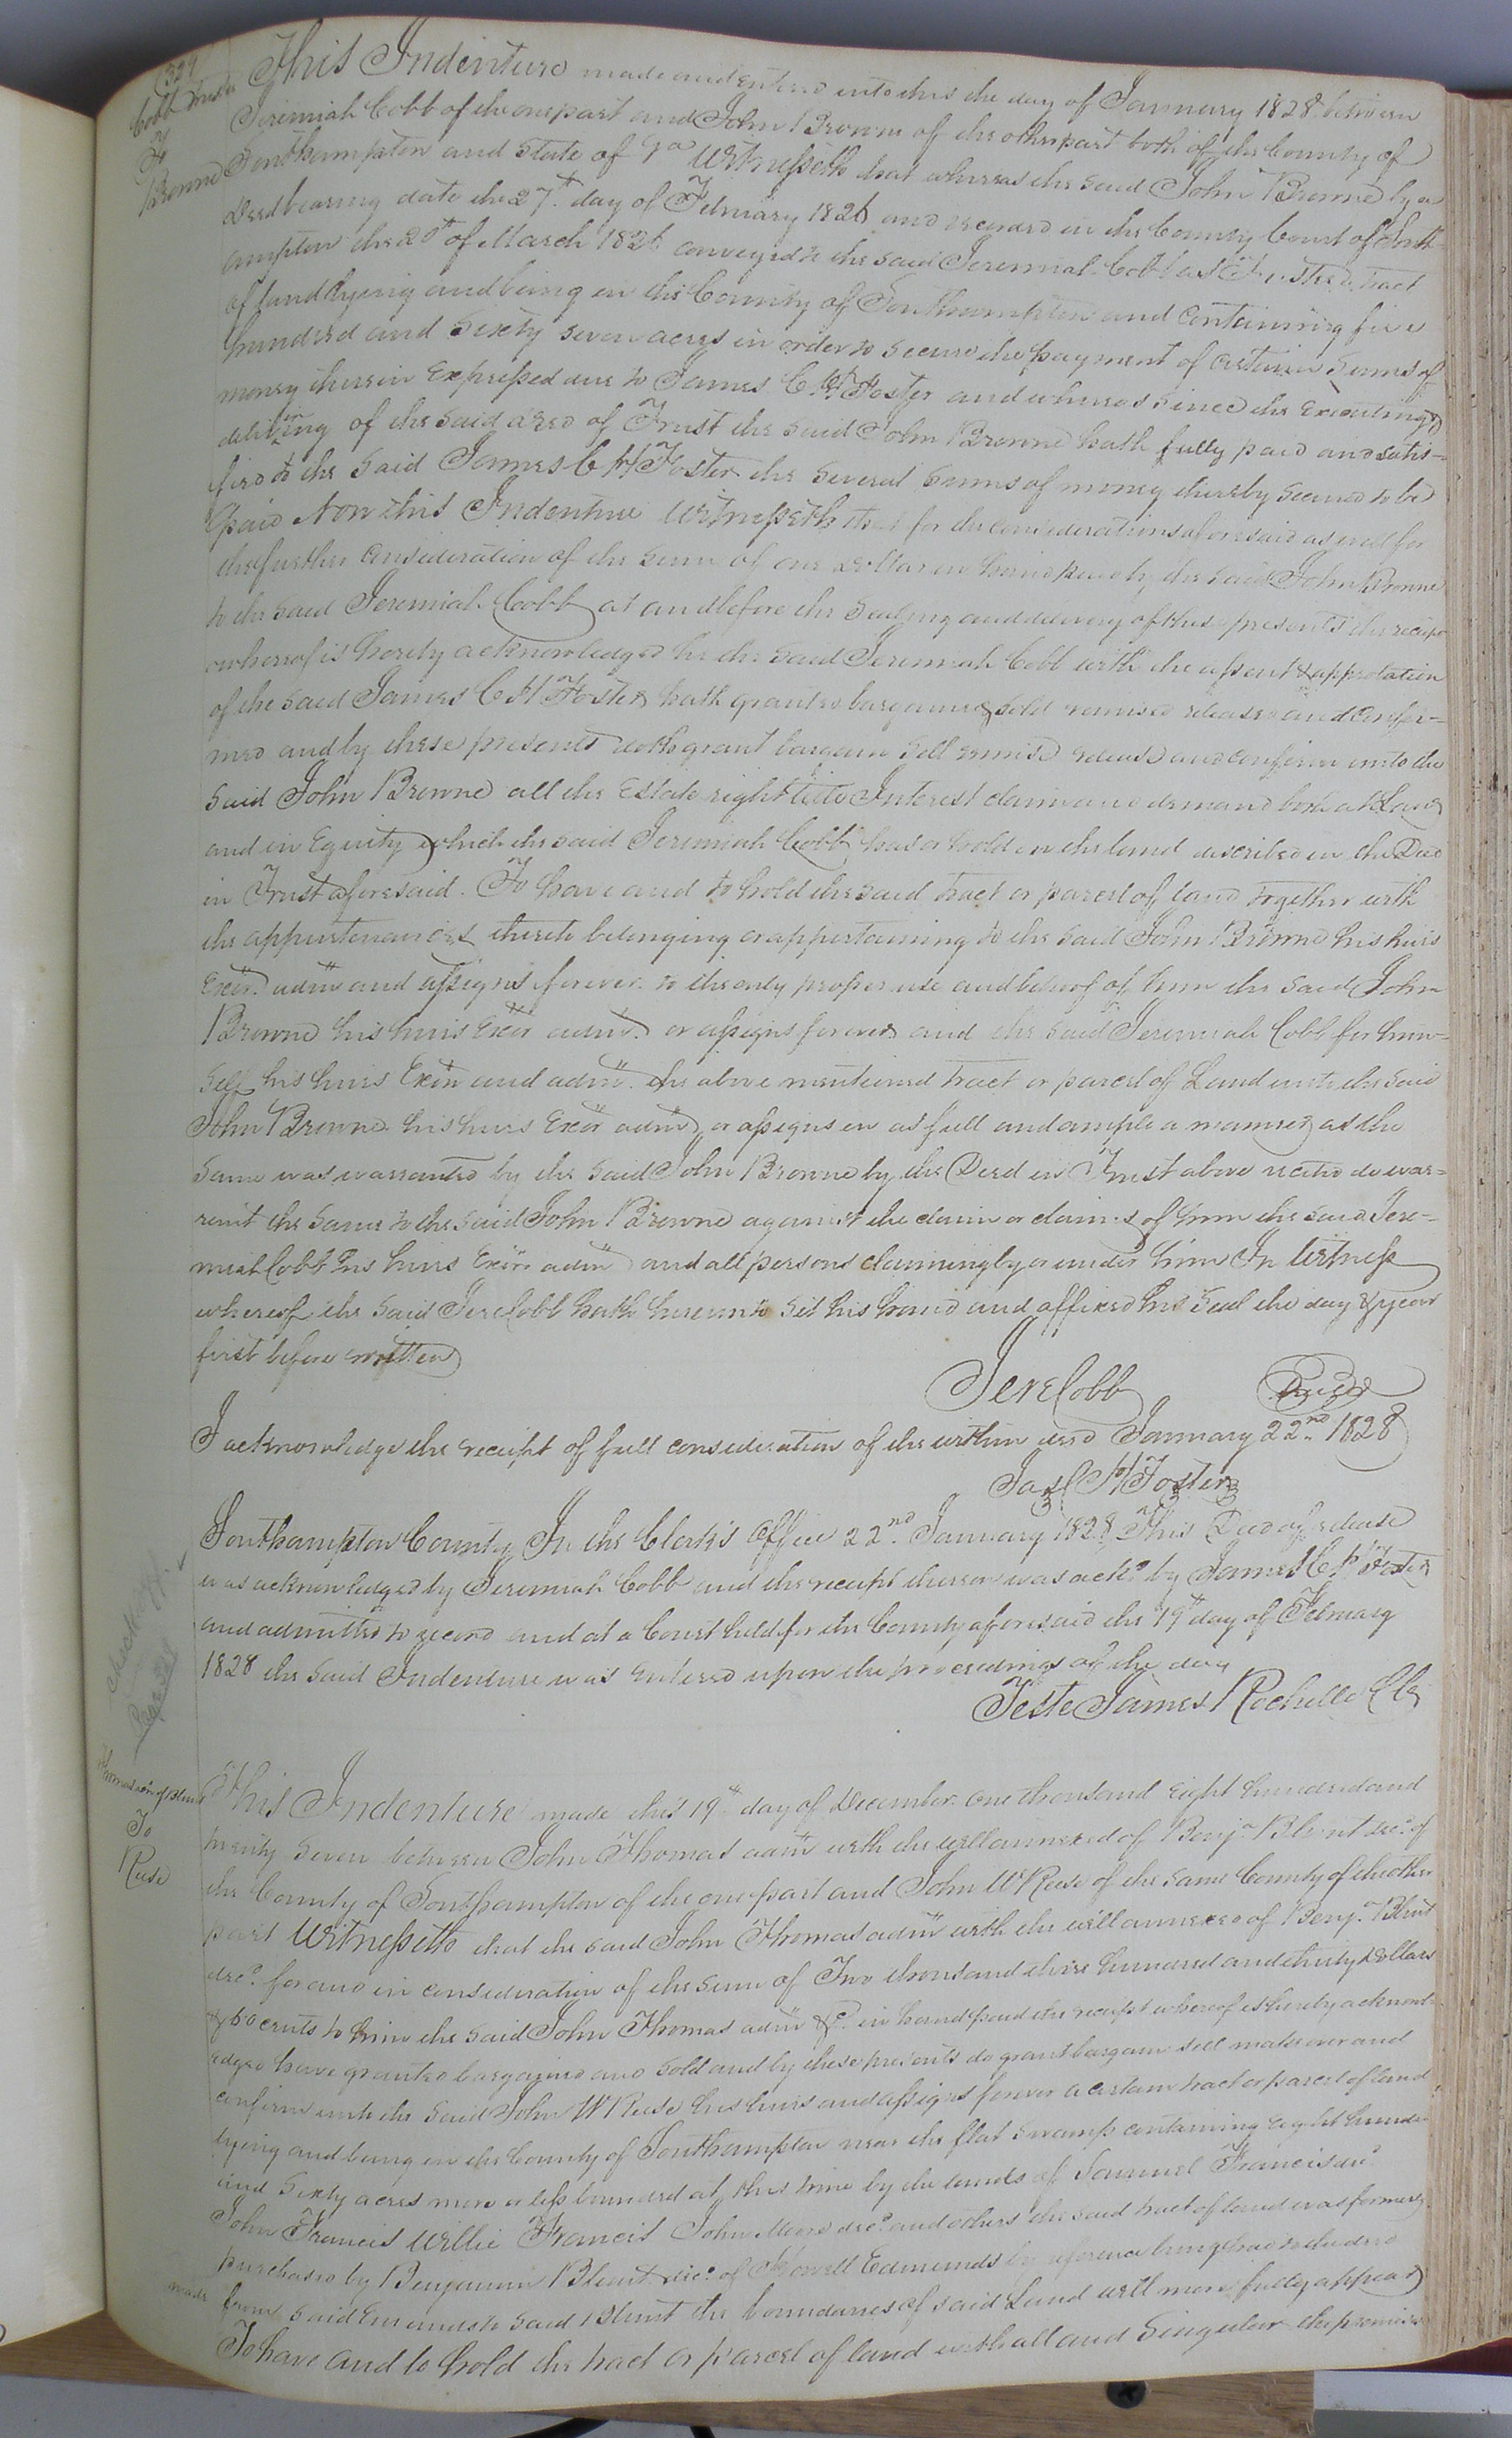 329
Cobb Trustee
To
Browne
This Indenture made and entered into this the day of January 1828 between
Jeremiah Cobb of the one part and John Browne of the other part both of the County of
Southampton and State of Va Witnesseth that whereas the said John Browne by a
deed bearing date the 27th day of February 1826 and record in the County Court of South-
ampton the 20th of March 1826 conveyed to the said Jeremiah Cobb as Trustee a tract
of land lying and being in the County of Southampton and containing five
hundred and sixty seven acres in order to secure the payment of certain sums of
money therein Expressed due to James C H Foster and whereas since the Executing &
delivering of the said deed of Trust the said John Browne hath fully paid and satis-
fied to the said James C H Foster the several sums of money thereby secured to be
paid Now this Indenture Witnesseth that for the considerations aforesaid as well for
the further consideration of the sum of one dollar in hand paid by the said John Browne
to the said Jeremiah Cobb at and before the sealing and delivery of these presents the receipt
whereof is hereby acknowledged he the said Jeremiah Cobb with the assent & approbation
of the said James C H Foster hath granted bargained & sold remised released and confir-
med and by these presents doth grant bargain sell remise release and confirm unto the
said John Browne all the Estate right title Interest claim and demand both at Law
and in Equity which the said Jeremiah Cobb has or hold in the land described in the Deed
in Trust aforesaid. To have and to hold the said tract or parcel of land together with
the appurtenances thereto belonging or appertaining to the said John Browne his heirs
Exors. adms and assigns forever to the only proper use and behoof of him the said John
Browne his heirs Exor adms. or assigns forever and the said Jeremiah Cobb for him-
self his heirs Exors and adms. the above mentioned tract or parcel of Land unto the said
John Browne his heirs Exor adms or assigns in as full and ample a manner as the
same was warranted by the said John Browne by the Deed in Trust above recited do war-
rant the same to the said John Browne against the claim or claims of him the said Jere-
miah Cobb his heirs Exors adms and all persons claiming by or under him In Witness
whereof the said Jere Cobb hath hereunto set his hand and affixed his Seal the day & year
first before written
Jere Cobb Seal
I acknowledge the receipt of full consideration of the within deed January 22nd 1828
Jas C H Foster
Southampton County In the Clerk's Office 22nd January 1828 This Deed of release
was acknowledged by Jeremiah Cobb and the receipt thereon was ackd by James C H Foster
and admitted to record and at a Court held for the County aforesaid the 19th day of February
1828 the said Indenture was entered upon the proceedings of the day
Teste James Rochelle Clk
Thomas adm of Blunt
To
Reese
This Indenture made this 19th day of December one thousand eight hundred and
twenty seven between John Thomas adm with the will annexed of Benja Blunt decd. of
the County of Southampton of the one part and John W Reese of the same County of the other
part Witnesseth that the said John Thomas adm with the will annexed of Benja. Blunt
decd. for and in consideration of the sum of Two thousand three hundred and thirty Dollars
& 60 cents to him the said John Thomas adm &c. in hand paid the receipt whereof is hereby acknowl-
edged have granted bargained and sold and by these presents do grant bargain sell make over and
confirm unto the said John W Reese his heirs and assigns forever a certain tract or parcel of land
lying and being in the County of Southampton near the flat swamp containing eight hundred
and sixty acres more or less bounded at this time by the lands of Samuel Francis decd
John Francis Willie Francis John Moore decd. and others the said tract of land was formerly
purchased by Benjamin Blunt decd. of Howell Edmunds by reference being had to the deed
made
from said Edmunds to said Blunt the boundaries of said Land will more fully appear
To have and to hold the tract or parcel of land with all and Singular the premises